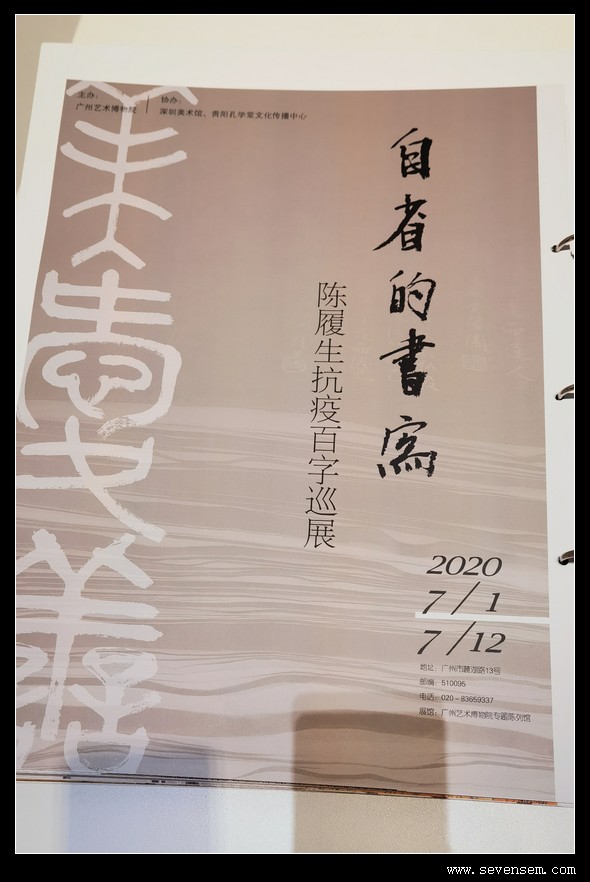 主办：
广州艺术博物院
协办：
深圳美术馆、贵阳孔学堂文化传播中心
自省的書寫
陈履生抗疫百字巡展
2020
7/1
7/12
地址：广州市麓湖路13号
邮编：510095
电话：020-83659337
展馆：广州艺术博物院专题陈列馆
www.sevensem.com